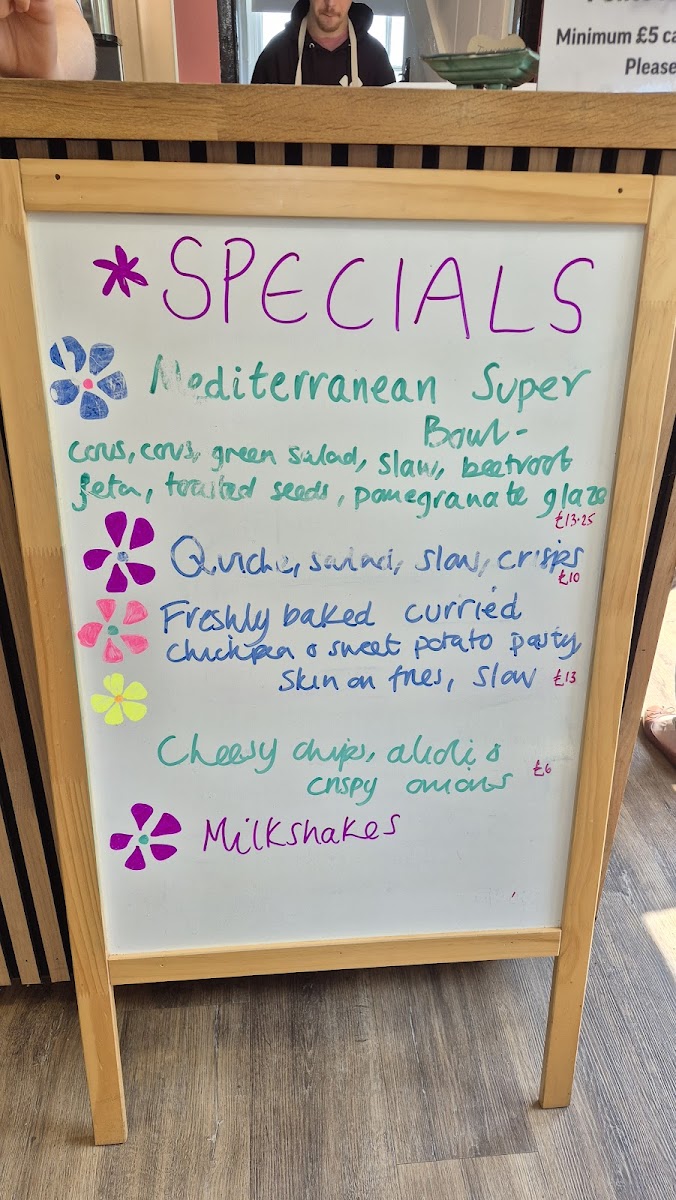 Minimum £5 ca
Please
SPECIALS
Mediterranean Super
Bowl -
cous, cous, green salad, slaw, beetroot
feta, toasted seeds, pomegranate glaze
£13.25
Quiche, salad, slaw, crisps
£10
Freshly baked curried
chickpea & sweet potato pasty
skin on fries, slaw £13
Cheesy chips, aioli &
crispy onions £6
Milkshakes